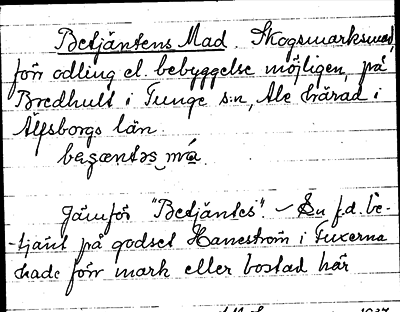 Betjäntens Mad. Skogsmarksmad,
förr odling el. bebyggelse möjligen, på
Bredhult i Tunge s:n, Ale härad i
Älfsborgs län
Jämför "Betjäntes". – En f.d. be-
-tjänt på godset Haneström i Fuxerna
hade förr mark eller bostad här
1937